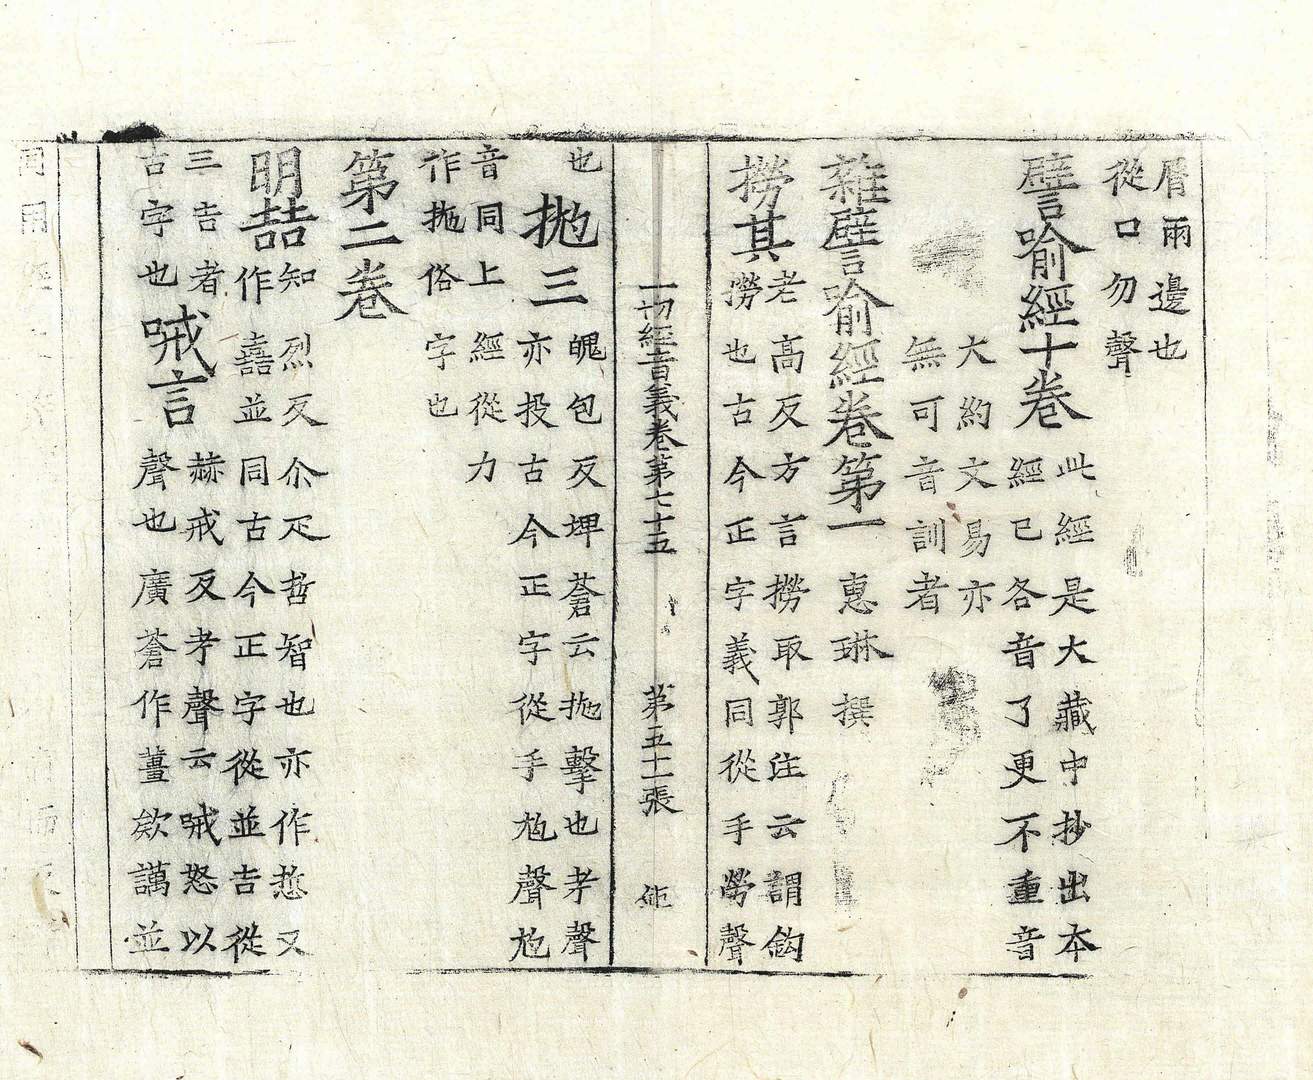 脣兩邊也
從口勿聲
譬喻經十卷
此經是大藏中抄出本
經已各音了更不重音
大約文易亦
無可音訓者
雜譬喻經卷第一 惠琳撰
撈其
老高反方言撈取郭注云謂鈎
撈也古今正字義同從手勞聲
一切經音義卷第七十五 第五十一張
也
抛三
魄包反埤蒼云抛擊也考聲
亦投古今正字從手尥聲尥
音同上經從力
作拋俗字也
第二卷
明喆
知烈反尒疋哲智也亦作悊又
作嚞並同古今正字從並吉從
三吉者
古字也
㖑言
赫戒反考聲云㖑怒以
聲也廣蒼作䪥欬講並